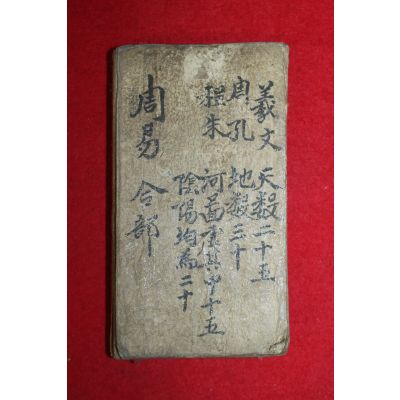 羲文 天数二十五
周孔 地数三十
程朱 河啚虛其中十五
陰陽均爲二十
周易 合部